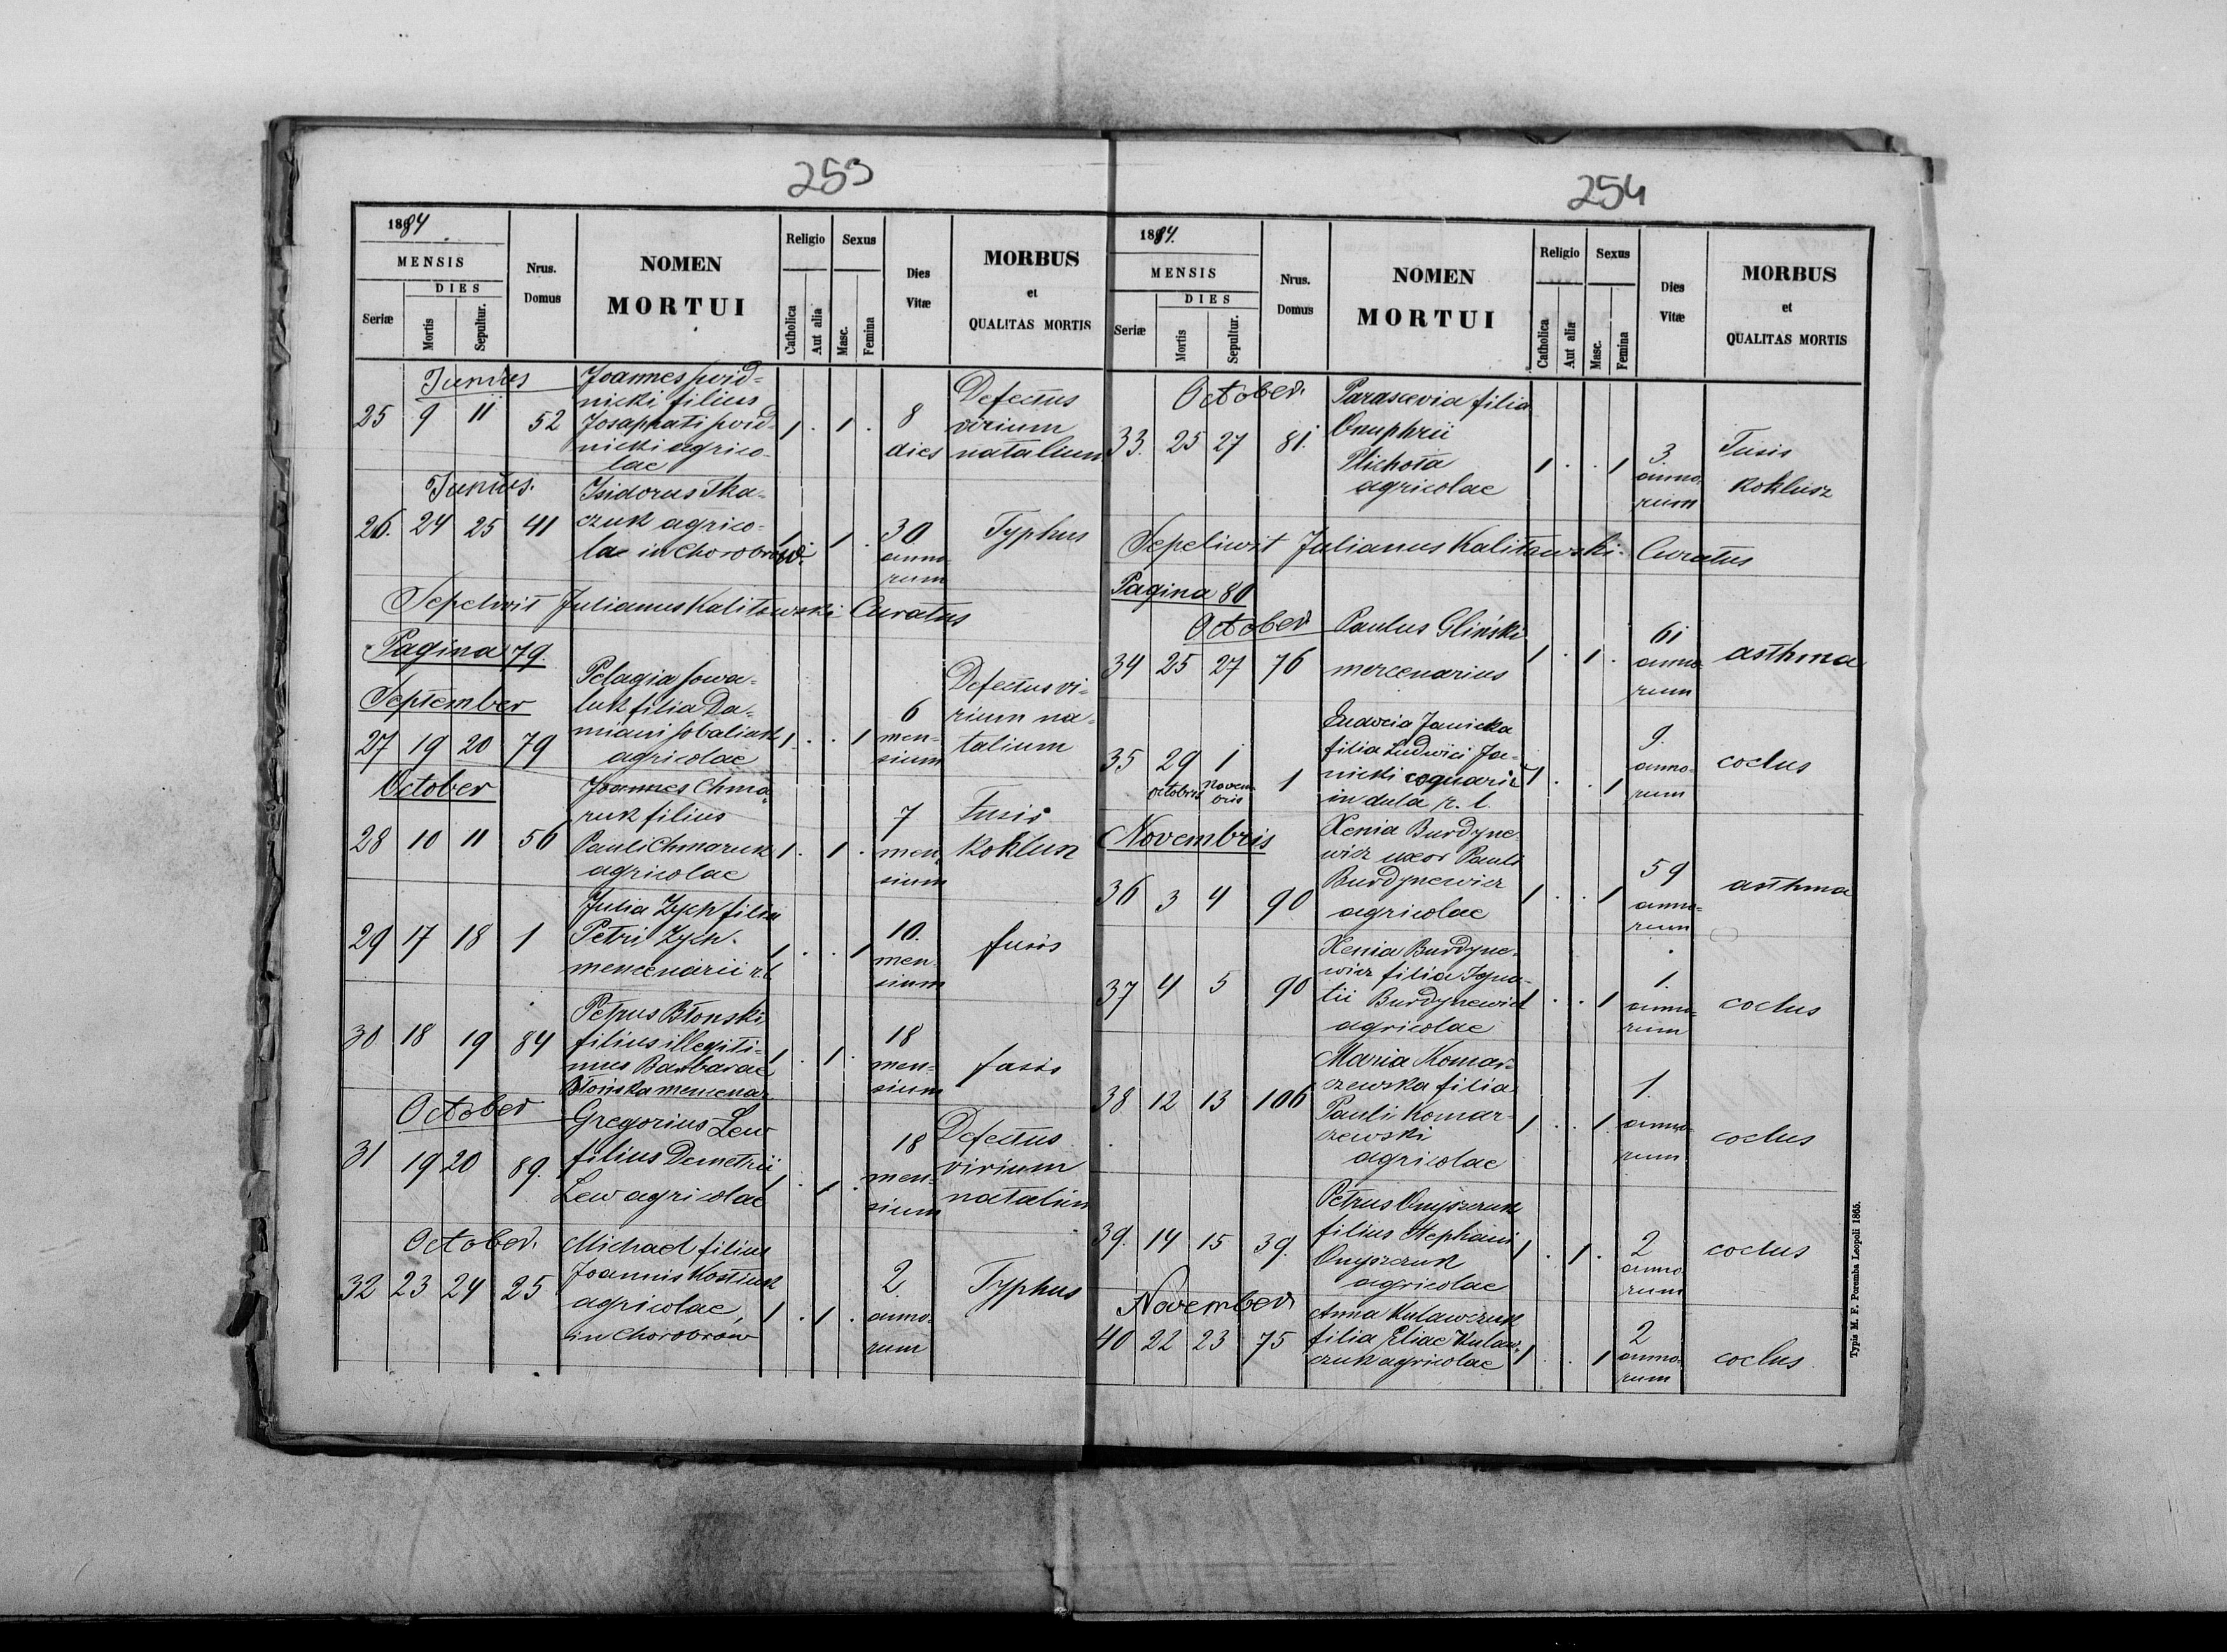 253
1884
MENSIS
DIES
Seriæ
Mortis
Sepultur.
Nrus.
Domus
NOMEN
MORTUI
Religio
Catholica
Aut alia
Sexus
Masc.
Femina
Dies
Vitæ
MORBUS
et
QUALITAS MORTIS
Junius
25 9 11 52 1 . 1 .
Joannes swid=
nicki filius
Josaphati swid=
nicki agrico-
lae
8
dies
Defectus
virium
natalium
Junius.
26. 24 25 41 1 . 1 .
Isidorus Tka-
czuk agrico-
lae in Chorobrow
30
anno
rum
Typhus
Sepelivit Julianus Kalitowski Curatus
Pagina 79.
September
27 19 20 79 1 . . 1
Pelagia sowa=
luk filia Da=
miani sobaliuk
agricolae
6
men=
sium
Defectus vi=
rium na=
talium
October
28 10 11 56 1 . 1 .
Joannes Chma
ruk filius
Pauli Chmaruk
agricolae
7
men
sium
Tusis
Koklusz
29 17 18 1 1 . . 1
Julia Zych filia
Petri Zych.
mercenarii r. l.
10.
men
sium
tusis
30 18 19 84 1 . 1 .
Petrus Błonski
filius illegiti=
mus Barbarae
Błońska mercenar.
18
men=
sium
tusis
October
31 19 20 89. 1 . 1 .
Gregorius Lew
filius Demetrii
Lew agricolae
18
men=
sium
Defectus
virium
natalium
October.
32 23 24 25 1 . 1 .
Michael filius
Joannis Kostiuk
agricolae,
in Chorobrow
2
anno-
rum
Typhus
254
1884.
MENSIS
DIES
Seriæ
Mortis
Sepultur.
Nrus.
Domus
NOMEN
MORTUI
Religio
Catholica
Aut alia
Sexus
Masc.
Femina
Dies
Vitæ
MORBUS
et
QUALITAS MORTIS
October.
33. 25 27 81. 1 . . 1
Parascevia filia
Onuphrii
Plichota
agricolae
3
anno
rum
Tusis
Koklusz
Sepeliwit Julianus Kalitowski. Curatus
Pagina 80
October
34 25 27 76 1 . 1 .
Paulus Gliński
mercenarius
61
anno
rum
asthma
35 29 octobris 1 Novembris 1 1 . . 1
Janicka
filia Ludwici Ja-
nicki
in aula r. l.
9.
anno-
rum
coclus
Novembris
36 3 4 90 1 . . 1
Xenia Burdyne-
wicz uxor Pauli
Burdynewicz
agricolae
59
anno=
rum
asthma
37 4 5 90 1 . . 1
Xenia Burdyne-
wicz filia Igna-
tii Burdynewicz
agricolae
1.
anno-
rum
coclus
38 12 13 106 1 . . 1
Maria Komar-
czewska filia
Pauli Komar-
czewski
agricolae
1.
anno-
rum
coclus
39. 14 15 39. 1 . 1 .
Petrus Onyszczuk
filius Stephani
Onyszczuk
agricolae
2
anno
rum
coclus
November
40 22 23 75 1 . . 1
Anna Kulawczuk
filia Eliae Kulaw-
czuk agricolae
2
anno-
rum
coclus
Typis M. F. Poremba Leopoli 1865.